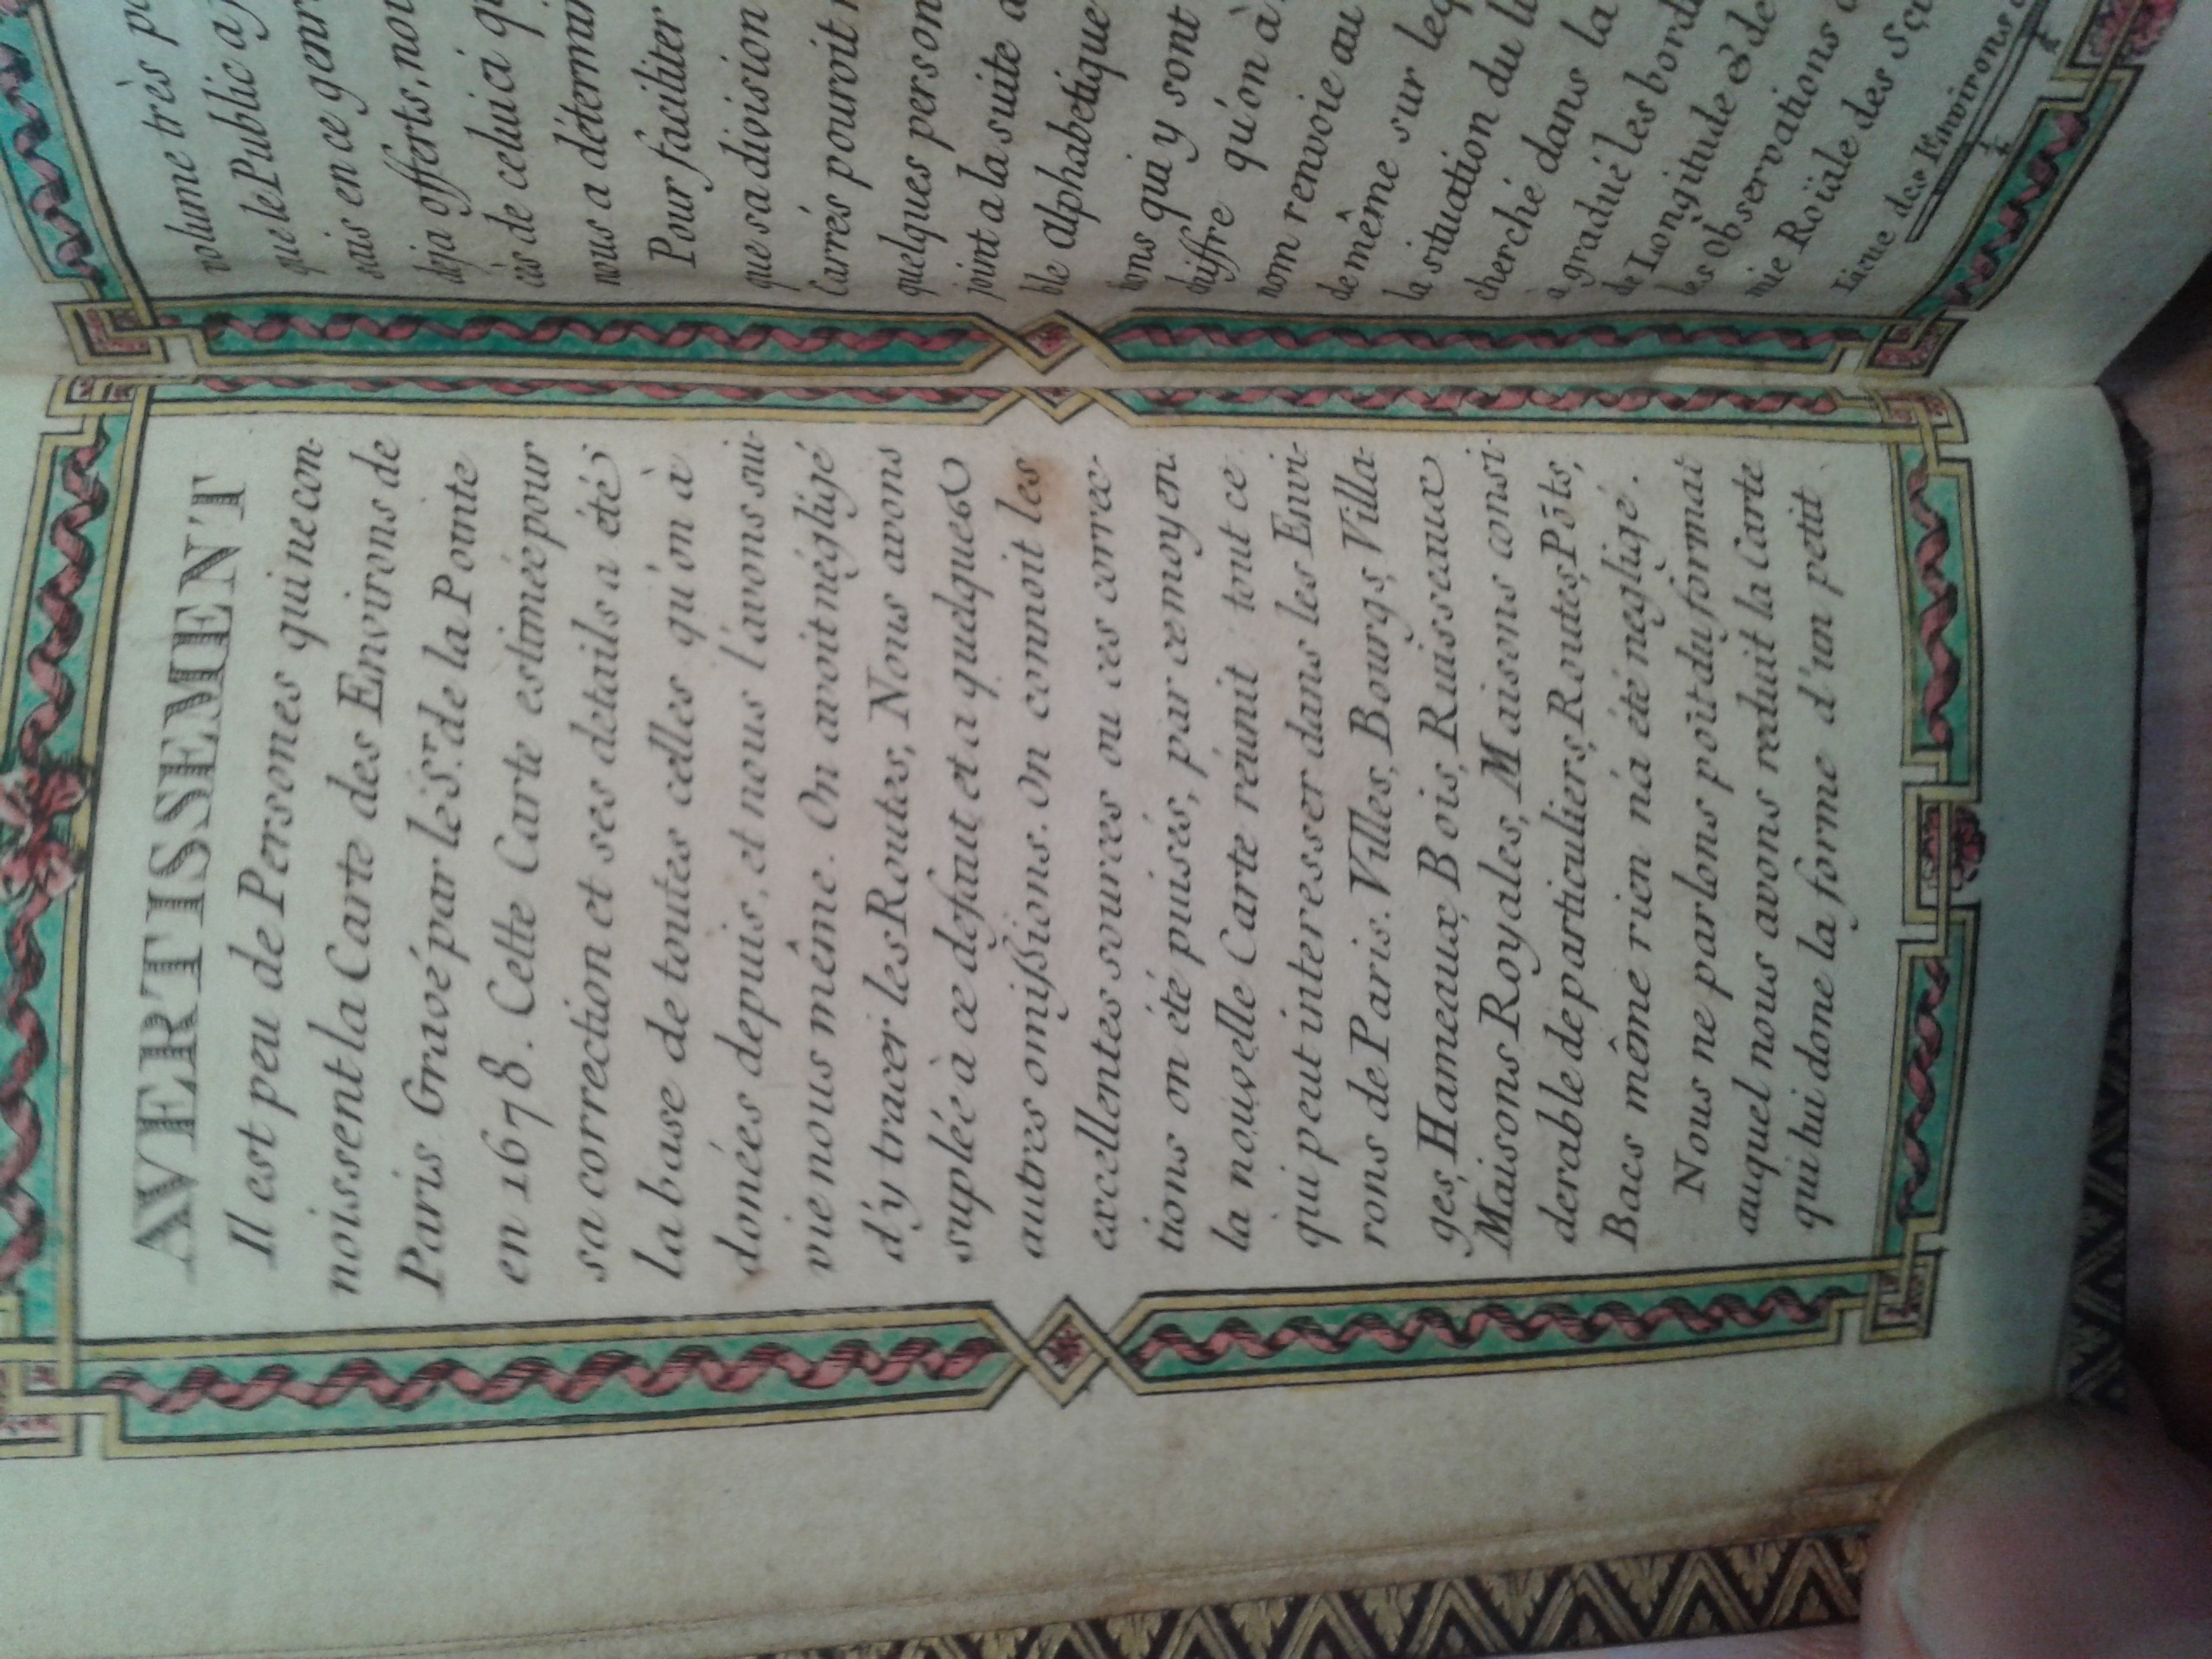 AVERTISSEMENT
Il est peu de Persones qui ne con-
noissent la Carte des Environs de
Paris Gravé par le Sr. de la Pointe
en 1678. Cette Carte estimée pour
sa correction et ses details a été
la base de toutes celles qu'on à
donées depuis, et nous l'avons sui-
vie nous même. On avoit négligé
d'y tracer les Routes, Nous avons
suplée à ce defaut et a quelques
autres omissions. On connoit les
excellentes sources ou ces correc-
tions on été puisés, par ce moyen
la nouvelle Carte réunit tout ce
qui peut interesser dans les Envi-
rons de Paris. Villes, Bourgs, Villa-
ges, Hameaux, Bois, Ruisseaux
Maisons Royales, Maisons consi-
derable de particuliers, Routes, Pôts,
Bacs même rien n'a été negligé.
Nous ne parlons poit du format
auquel nous avons reduit la Carte
qui lui done la forme d'un petit
volume très
que le Public a
sais en ce
deja offerts,
cès de celui ci
nous a
Pour faciliter
que sa division
Carrés pouroit
quelques
joint a la suite
ble alphabetique
tions qui y sont
chiffre qu'on à
nom renvoie au
de même sur
la situation du
cherché dans la
a gradué les
de Longitude & de
les Observations
mie Roïale des
Lieue des Environs